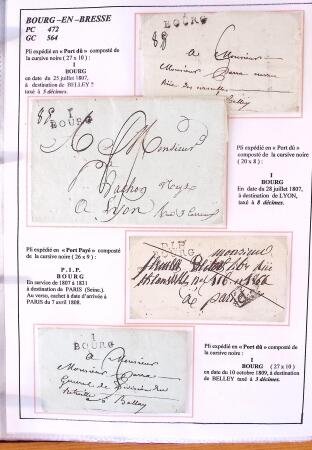 BOURG-EN-BRESSE
PC 472
GC 564
Pli expédié en « Port dû » composé
de la cursive noire ( 27 x 10 ) :
I
BOURG
en date du 25 juillet 1807,
à destination de BELLEY !!
taxé à 3 décimes.
I
BOURG
à Monsieur
Monsieur
Belley
Pli expédié en « Port dû »
composé de la cursive noire
( 20 x 8 ) :
I
BOURG
En date du 28 juillet 1807,
à destination de LYON,
taxé à 8 décimes.
I
BOURG
A Monsieur
à Lyon
Pli expédié en « Port Payé » composté
de la cursive noire ( 26 x 9 ) :
P.I.P.
BOURG
En service de 1807 à 1831
à destination du PARIS (Seine.)
Au verso, cachet à date d'arrivée à
PARIS du 7 avril 1808.
P.I.P
BOURG
monsieur
à paris
Pli expédié en « Port dû » composté
de la cursive noire :
I
BOURG ( 27 x 10 )
en date du 10 octobre 1809, à destination
de BELLEY taxé à 3 décimes.
I
BOURG
à Monsieur
Monsieur
General de Division en
Retraite à Belley